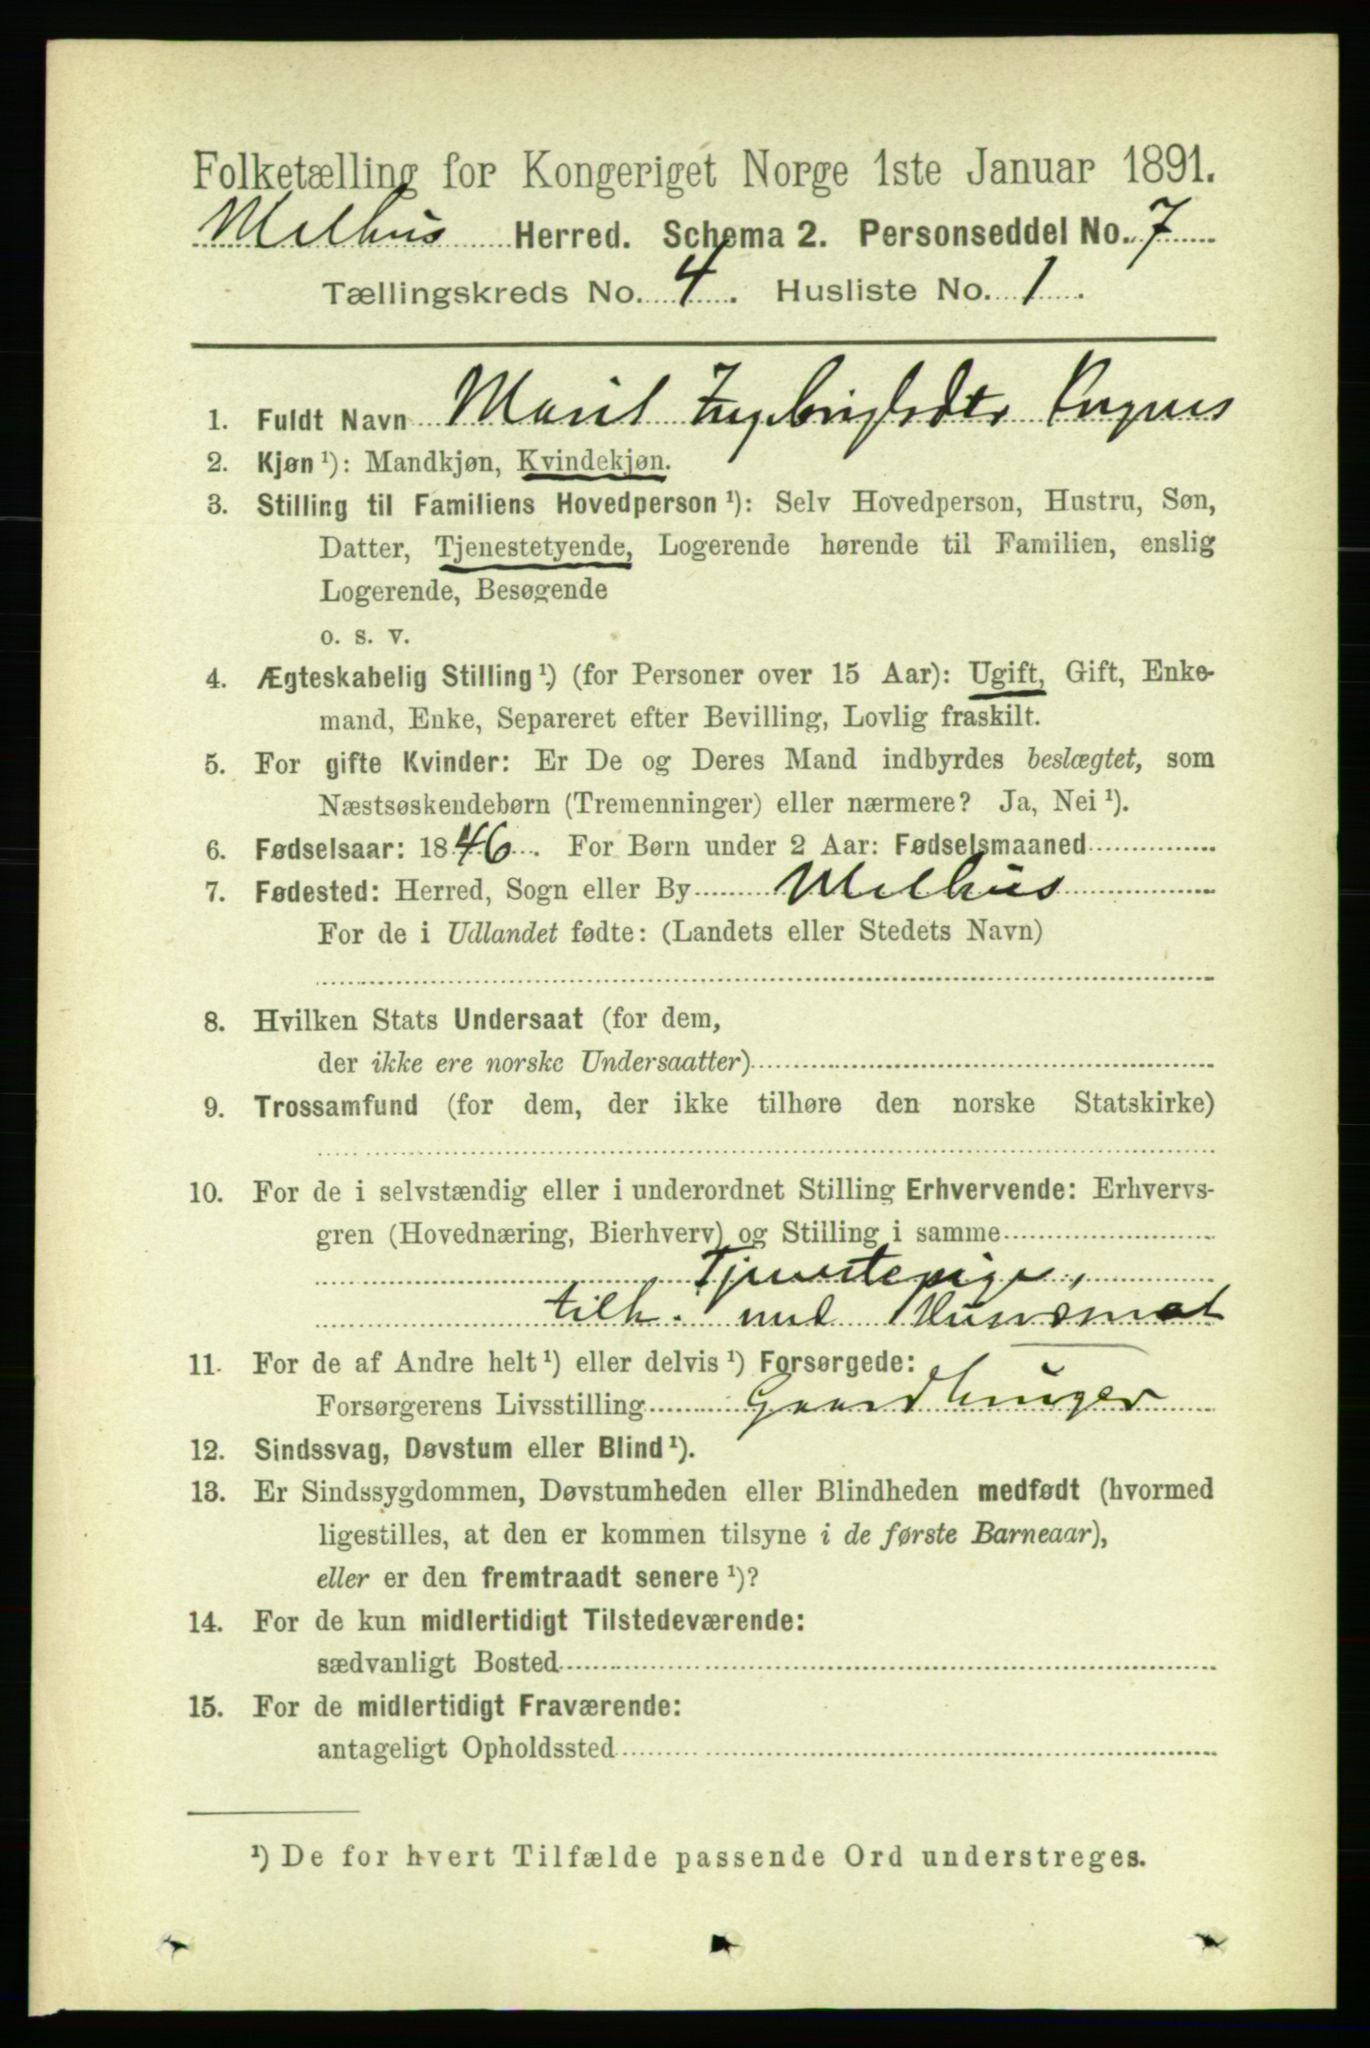 Folketælling for Kongeriget Norge 1ste Januar 1891.
Melhus Herred. Schema 2. Personseddel No. 7
Tællingskreds No. 4. Husliste No. 1.
1. Fuldt Navn Marit Ingebrigtsdtr
2. Kjøn ¹): Mandkjøn, Kvindekjøn.
3. Stilling til Familiens Hovedperson ¹): Selv Hovedperson, Hustru, Søn,
Datter, Tjenestetyende, Logerende hørende til Familien, enslig
Logerende, Besøgende
o. s. v.
4. Ægteskabelig Stilling ¹) (for Personer over 15 Aar): Ugift, Gift, Enke-
mand, Enke, Separeret efter Bevilling, Lovlig fraskilt.
5. For gifte Kvinder: Er De og Deres Mand indbyrdes beslægtet, som
Næstsøskendebørn (Tremenninger) eller nærmere? Ja, Nei ¹).
6. Fødselsaar: 1846. For Børn under 2 Aar: Fødselsmaaned
7. Fødested: Herred, Sogn eller By Melhus
For de i Udlandet fødte: (Landets eller Stedets Navn)
8. Hvilken Stats Undersaat (for dem,
der ikke ere norske Undersaatter)
9. Trossamfund (for dem, der ikke tilhøre den norske Statskirke)
10. For de i selvstændig eller i underordnet Stilling Erhvervende: Erhvervs-
gren (Hovednæring, Bierhverv) og Stilling i samme
Tjenestepige,
tilh. med Kunsmat
11. For de af Andre helt ¹) eller delvis ¹) Forsørgede:
Forsørgerens Livsstilling Gaardbruger
12. Sindssvag, Døvstum eller Blind ¹).
13. Er Sindssygdommen, Døvstumheden eller Blindheden medfødt (hvormed
ligestilles, at den er kommen tilsyne i de første Barneaar),
eller er den fremtraadt senere ¹)?
14. For de kun midlertidigt Tilstedeværende:
sædvanligt Bosted
15. For de midlertidigt Fraværende:
antageligt Opholdssted
¹) De for hvert Tilfælde passende Ord understreges.